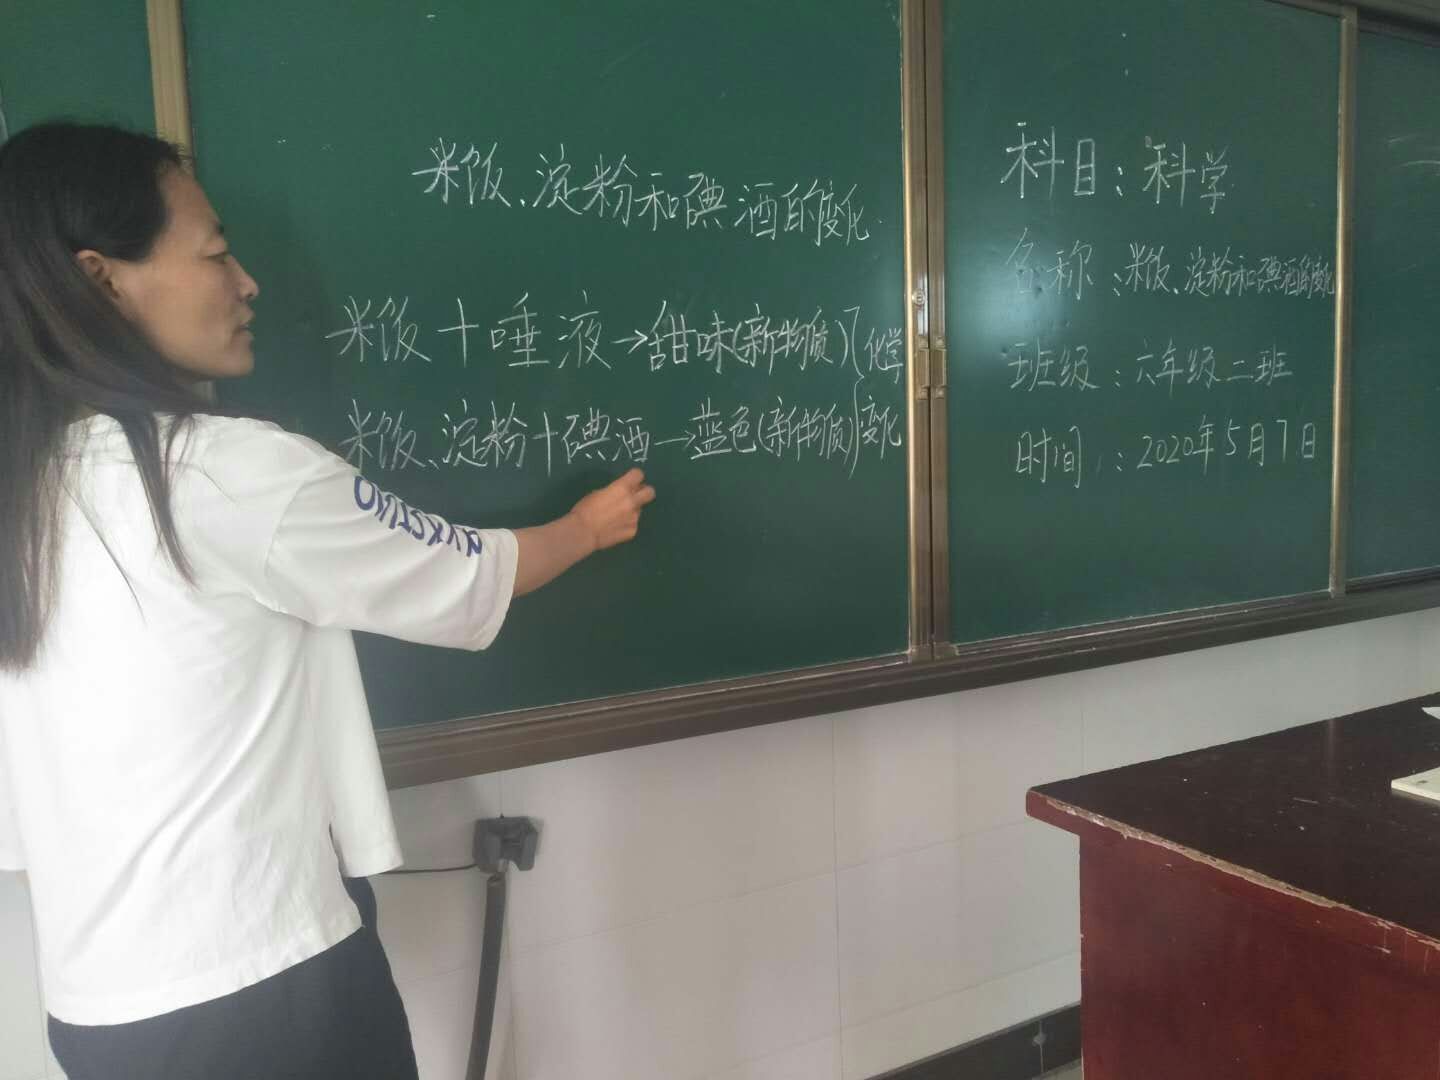 米饭、淀粉和碘酒的变化
米饭+唾液→甜味(新物质)
米饭、淀粉+碘酒→蓝色(新物质)
化学
变化
科目：科学
名称：米饭、淀粉和碘酒的变化
班级：六年级二班
时间：2020年5月7日